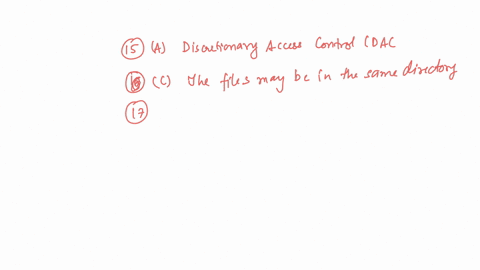 15 (A) Discretionary Access Control (DAC
16 (C) The files may be in the same directory
17